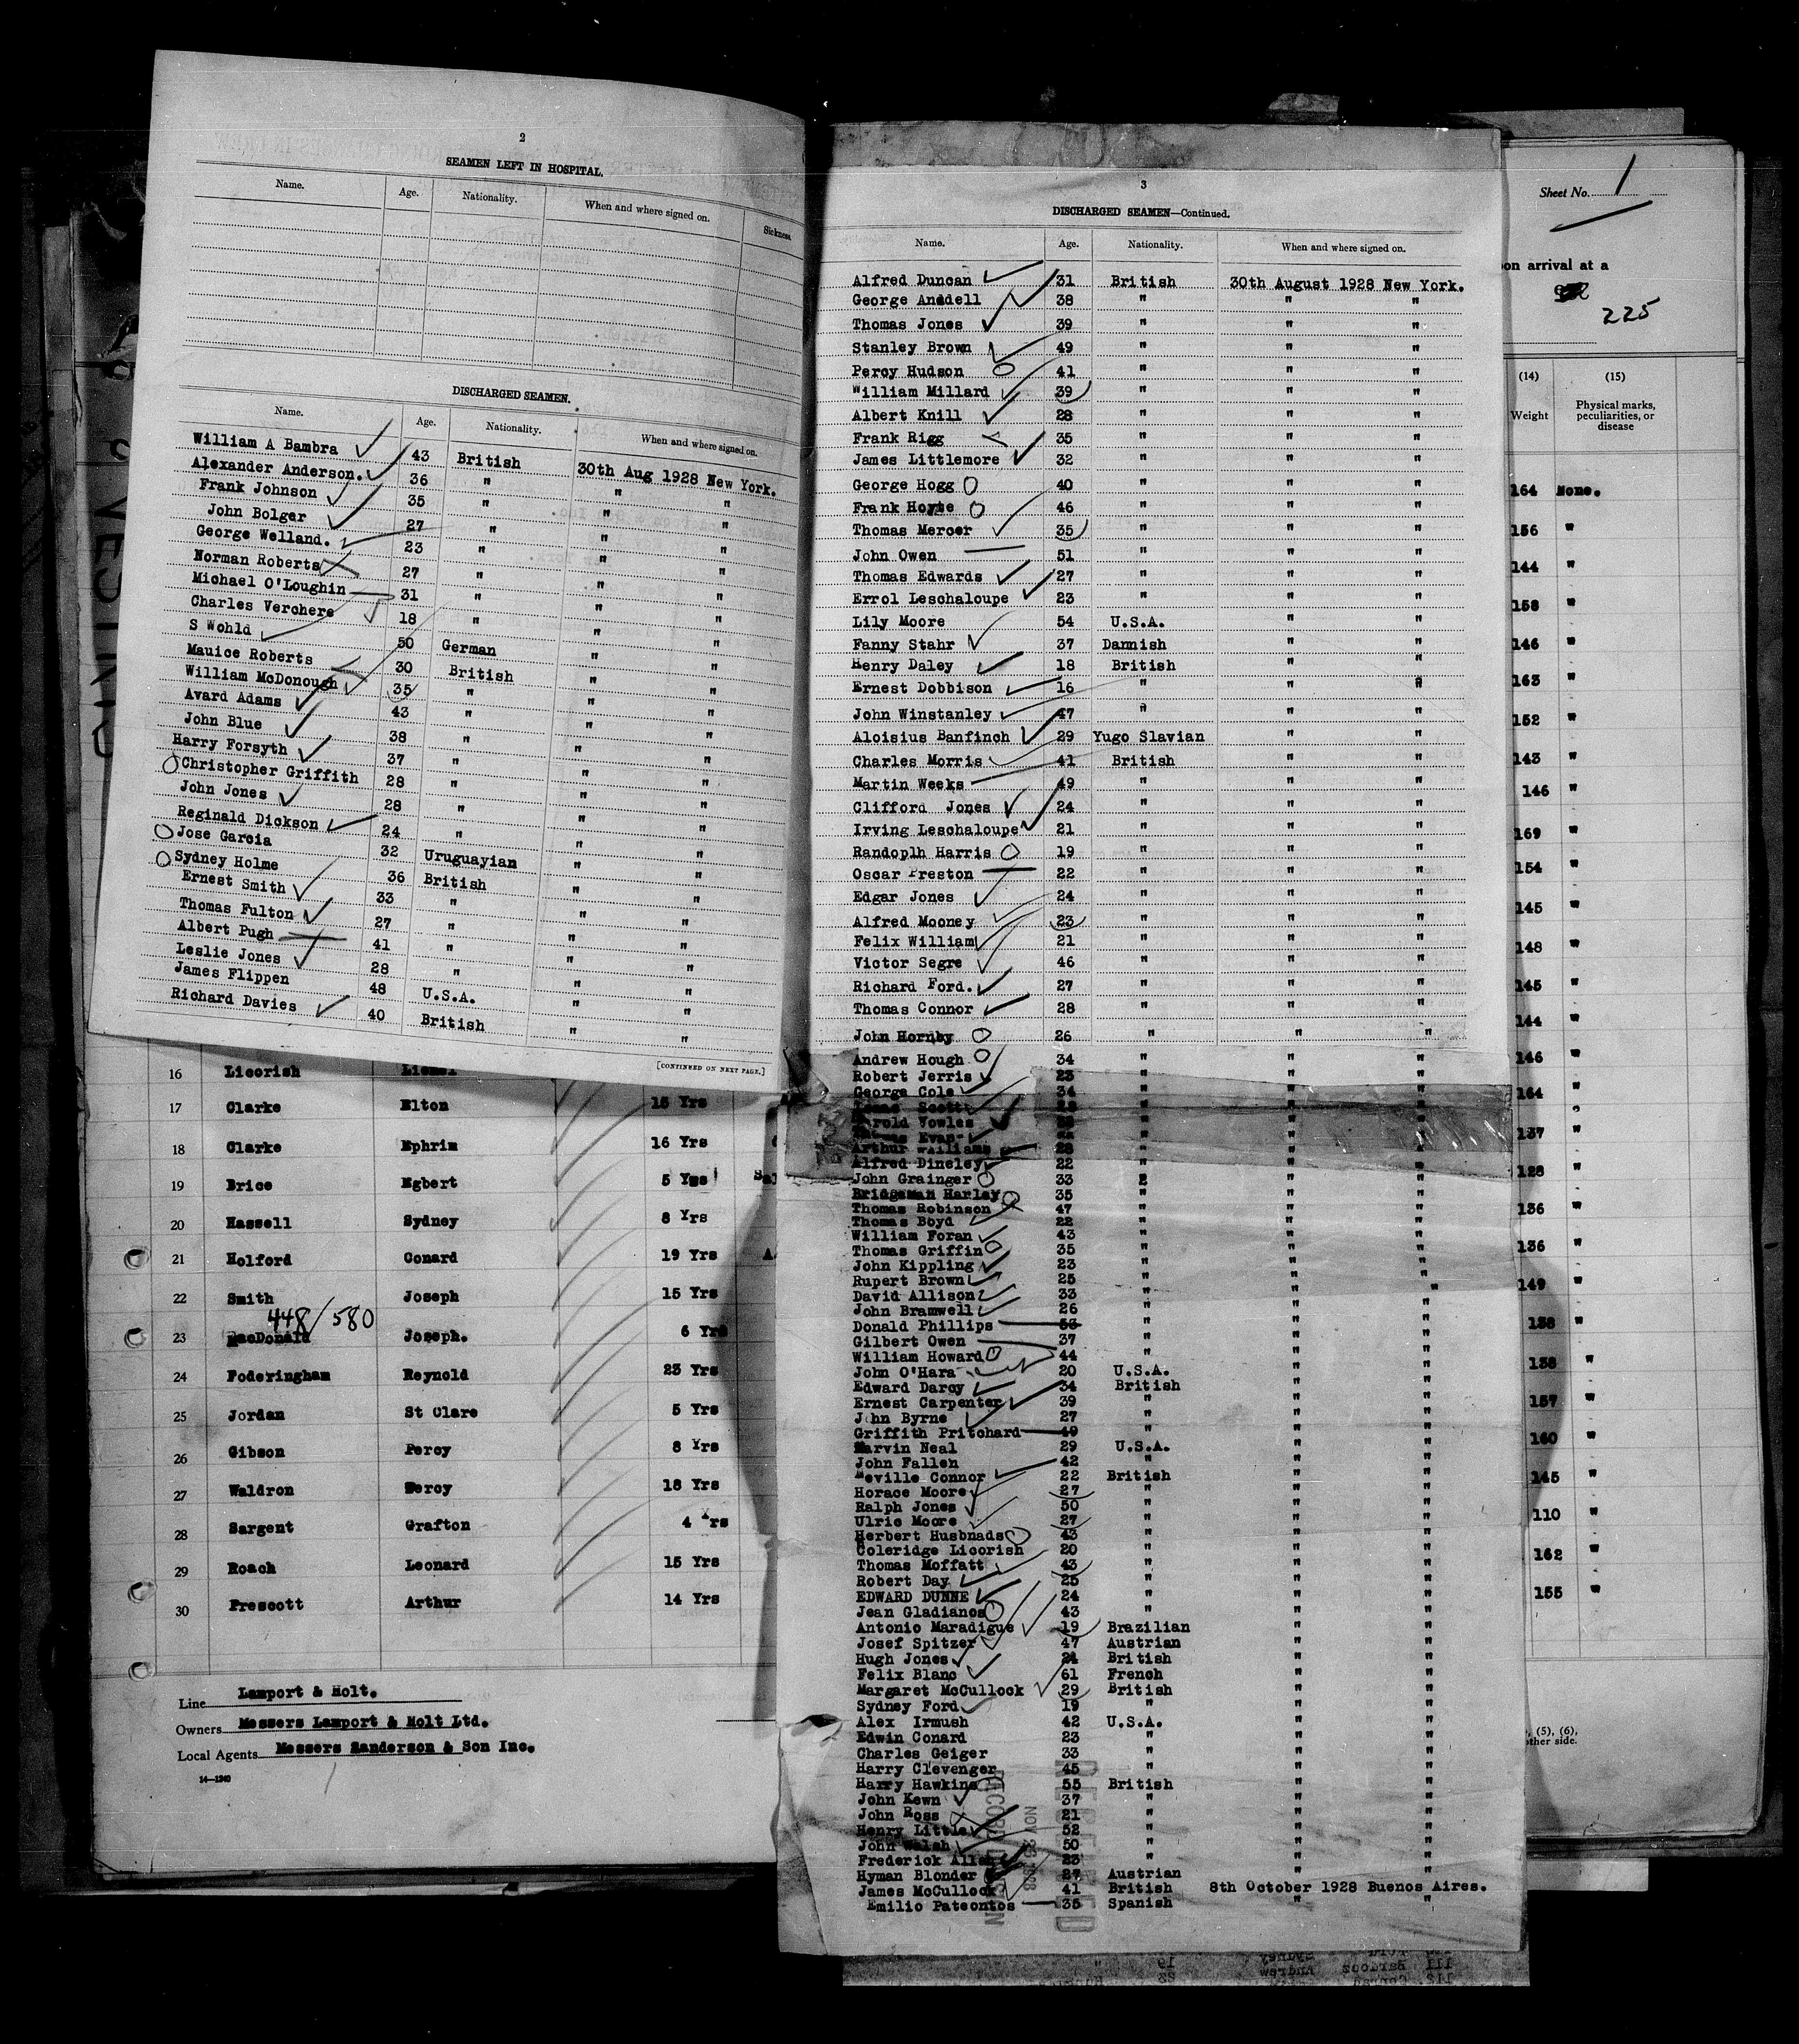 2
SEAMEN LEFT IN HOSPITAL.
Name. Age. Nationality. When and where signed on. Sickness.
DISCHARGED SEAMEN.
Name. Age. Nationality. When and where signed on.
William A Bambra 43 British 30th Aug 1928 New York.
Alexander Anderson. 36 " " "
Frank Johnson 35 " " "
John Bolger 27 " " "
George Welland. 23 " " "
Norman Roberts 27 " " "
Michael O'Loughin 31 " " "
Charles Verchere 18 " " "
S Wohld 50 German " "
Mauice Roberts 30 British " "
William McDonough 35 " " "
Avard Adams 43 " " "
John Blue 38 " " "
Harry Forsyth 37 " " "
Christopher Griffith 28 " " "
John Jones 28 " " "
Reginald Dickson 24 " " "
Jose Garcia 32 Uruguayian " "
Sydney Holme 36 British " "
Ernest Smith 33 " " "
Thomas Fulton 27 " " "
Albert Pugh 41 " " "
Leslie Jones 28 " " "
James Flippen 48 U.S.A. " "
Richard Davies 40 British " "
[CONTINUED ON NEXT PAGE.]
16 Licorish Lionel
17 Clarke Elton 15 Yrs
18 Clarke Ephrim 16 Yrs
19 Brice Egbert 5 Yrs
20 Hassell Sydney 8 Yrs
21 Holford Conard 19 Yrs
22 Smith Joseph 15 Yrs
448/580
23 MacDonald Joseph. 6 Yrs
24 Foderingham Reynold 23 Yrs
25 Jordan St Clare 5 Yrs
26 Gibson Percy 8 Yrs
27 Waldron Percy 18 Yrs
28 Sargent Grafton 4 Yrs
29 Roach Leonard 15 Yrs
30 Prescott Arthur 14 Yrs
Line Lamport & Holt.
Owners Messers Lamport & Holt Ltd.
Local Agents Messers Sanderson & Son Inc.
14—1240
3
DISCHARGED SEAMEN—Continued.
Name. Age. Nationality. When and where signed on.
Alfred Duncan 31 British 30th August 1928 New York.
George Anddell 38 " " "
Thomas Jones 39 " " "
Stanley Brown 49 " " "
Percy Hudson 41 " " "
William Millard 39 " " "
Albert Knill 28 " " "
Frank Rigg 35 " " "
James Littlemore 32 " " "
George Hogg 40 " " "
Frank Hoyte 46 " " "
Thomas Mercer 35 " " "
John Owen 51 " " "
Thomas Edwards 27 " " "
Errol Leschaloupe 23 " " "
Lily Moore 54 U.S.A. " "
Fanny Stahr 37 Dannish " "
Henry Daley 18 British " "
Ernest Dobbison 16 " " "
John Winstanley 47 " " "
Aloisius Banfinch 29 Yugo Slavian " "
Charles Morris 41 British " "
Martin Weeks 49 " " "
Clifford Jones 24 " " "
Irving Leschaloupe 21 " " "
Randoplh Harris 19 " " "
Oscar Preston 22 " " "
Edgar Jones 24 " " "
Alfred Mooney 23 " " "
Felix William 21 " " "
Victor Segre 46 " " "
Richard Ford. 27 " " "
Thomas Connor 28 " " "
John Hornby 26 " " "
Andrew Hough 34 " " "
Robert Jerris 23 " " "
George Cole 34 " " "
Scott " " "
Harold Vowles " " "
Evans " " "
Arthur Williams 28 " " "
Alfred Dineley 22 " " "
John Grainger 33 " " "
Bridgeman Harley 35 " " "
Thomas Robinson 47 " " "
Thomas Boyd 22 " " "
William Foran 43 " " "
Thomas Griffin 35 " " "
John Kippling 23 " " "
Rupert Brown 25 " " "
David Allison 33 " " "
John Bramwell 26 " " "
Donald Phillips 53 " " "
Gilbert Owen 37 " " "
William Howard 44 " " "
John O'Hara 20 U.S.A. " "
Edward Darcy 34 British " "
Ernest Carpenter 39 " " "
John Byrne 27 " " "
Griffith Pritchard 49 " " "
Marvin Neal 29 U.S.A. " "
John Fallen 42 " " "
Neville Connor 22 British " "
Horace Moore 27 " " "
Ralph Jones 50 " " "
Ulric Moore 27 " " "
Herbert Husbnads 43 " " "
Coleridge Licorish 20 " " "
Thomas Moffatt 43 " " "
Robert Day 25 " " "
EDWARD DUNNE 24 " " "
Jean Gladianos 43 " " "
Antonio Maradigue 19 Brazilian " "
Josef Spitzer 47 Austrian " "
Hugh Jones 21 British " "
Felix Blanc 61 French " "
Margaret McCullock 29 British " "
Sydney Ford 19 " " "
Alex Irmush 42 U.S.A. " "
Edwin Conard 23 " " "
Charles Geiger 33 " " "
Harry Clevenger 45 " " "
Harry Hawkins 55 British " "
John Kewn 37 " " "
John Ross 21 " " "
Henry Little 52 " " "
John Walsh 50 " " "
Frederick Allen 23 " " "
Hyman Blonder 27 Austrian " "
James McCullock 41 British 8th October 1928 Buenos Aires.
Emilio Pateontos 35 Spanish " "
RECORD DIVISION
NOV 26 1928
Sheet No. 1
on arrival at a
225
(14) (15)
Weight Physical marks, peculiarities, or disease
164 None.
156 "
144 "
158 "
146 "
163 "
152 "
143 "
146 "
169 "
154 "
145 "
148 "
145 "
144 "
146 "
164 "
137 "
128 "
136 "
136 "
149 "
138 "
138 "
157 "
160 "
145 "
110 "
162 "
155 "
, (5), (6),
other side.